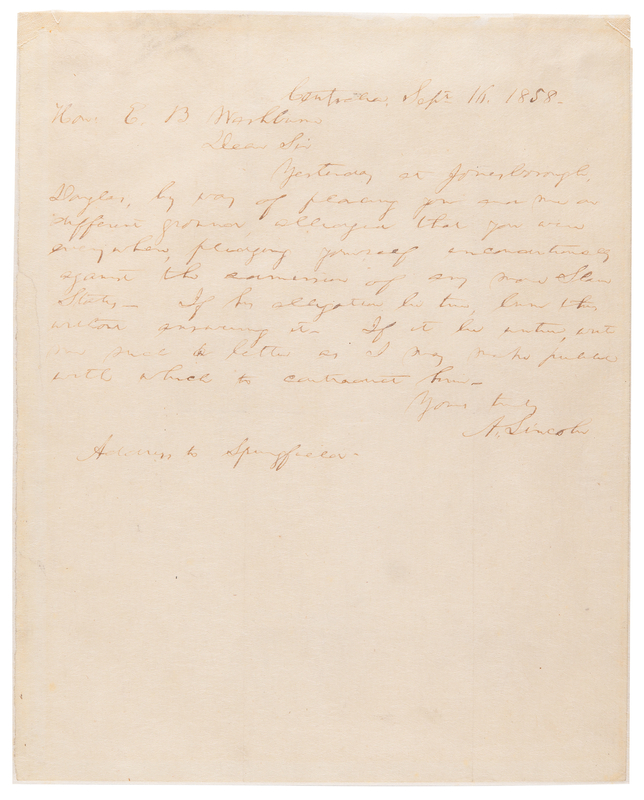 Centralia, Sept. 16. 1858.
Hon: E. B. Washburne
Dear Sir
Yesterday at Jonesborough,
Douglas, by way of placing you and me on
different ground, alleged that you were
everywhere, pledging yourself unconditionally
against the admission of any more Slave
States— If his allegation be true, burn this
without answering it— If it be untrue, write
me such a letter as I may make public
with which to contradict him—
Yours truly
A. Lincoln
Address to Springfield—